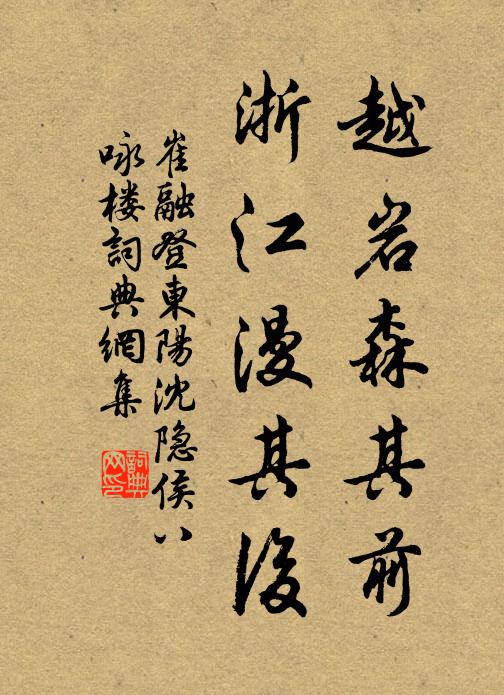 越岩森其前
浙江漫其後
崔融登東陽沈隐侯八
咏楼詞典網集
詞典
网印